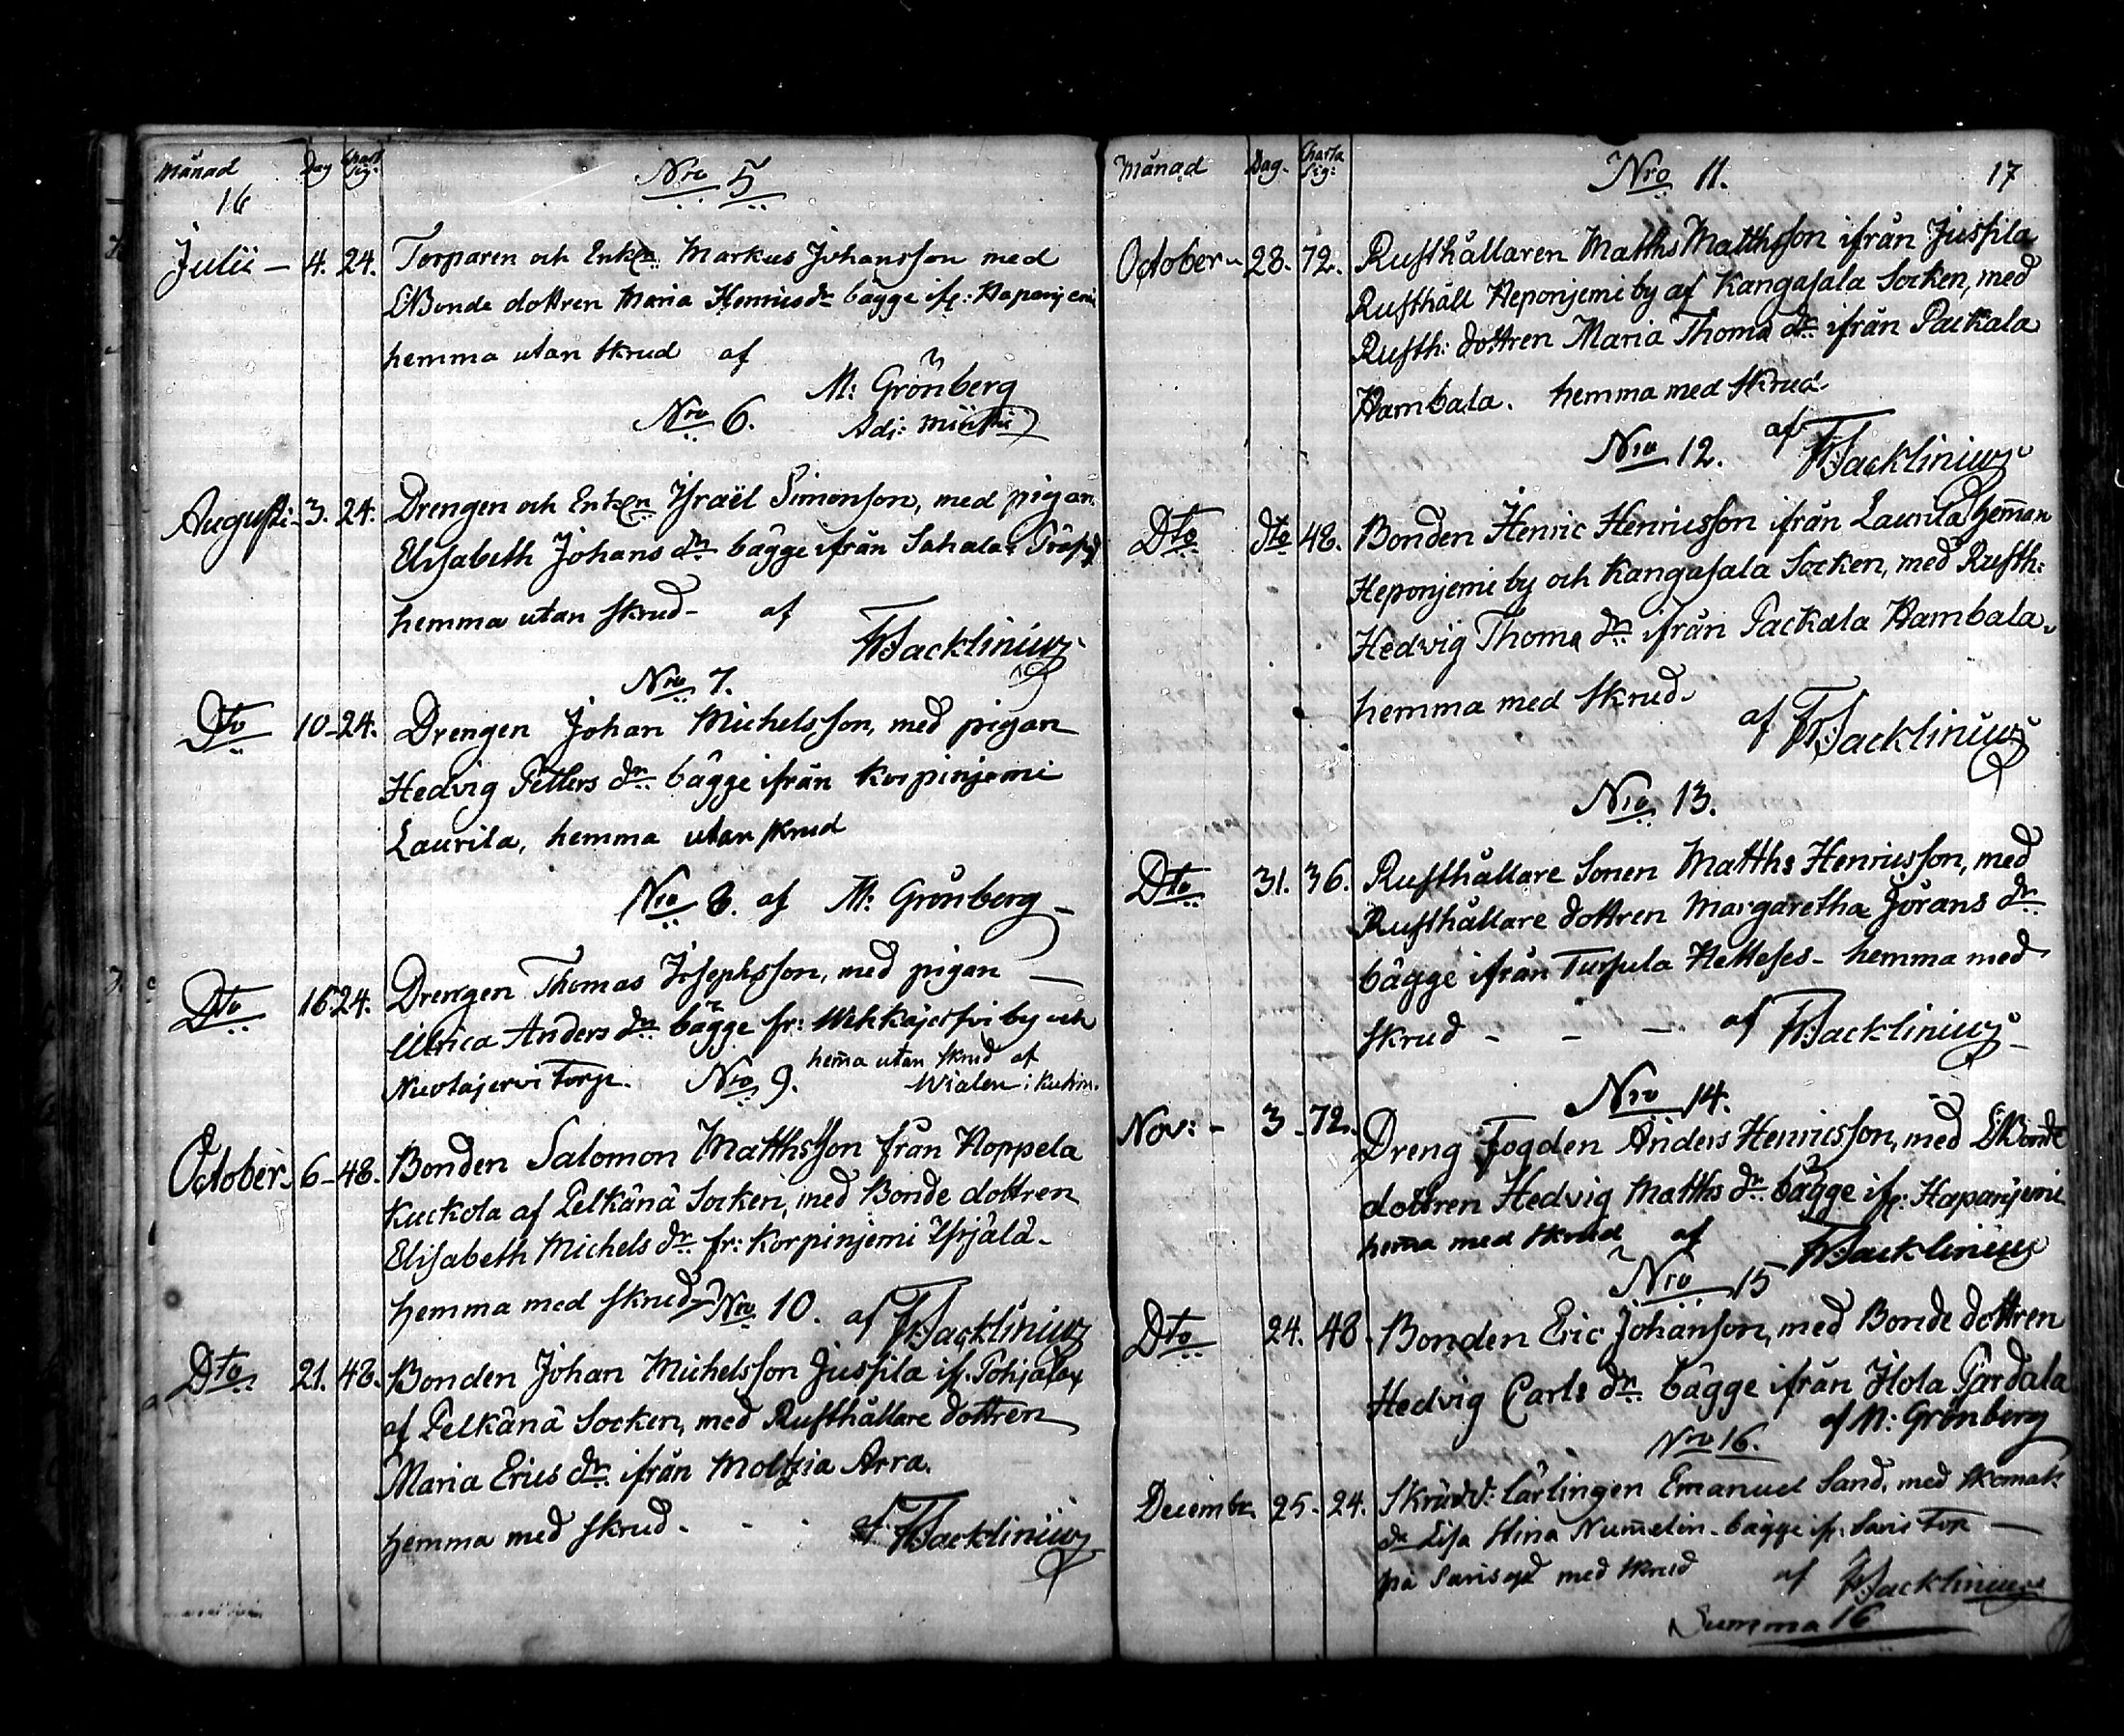 Månad Dag Charta Sig:
16
Nro 5
Julii – 4. 24. Torparen och Enkl. Markus Johansson med
Bonde dottren Maria Henrics dr bägge ifr: Haponjemi
hemma utan skrud af
M: Grönberg
Adj: Minist:
Nro 6.
Augusti – 3. 24. Drengen och Enkl. Israël Simonson, med pigan
Elisabeth Johans dr bägge ifrån Sahalax
hemma utan skrud – af
Backlinius
Nro 7.
Dto 10 – 24. Drengen Johan Michelsson, med pigan
Hedvig Petters dr bägge ifrån Korpinjemi
Laurila, hemma utan skrud
Nro 8. af M: Grönberg –
Dto 16 24. Drengen Thomas Josephsson, med pigan –
Ulrica Anders dr bägge fr: Wehkajerfvi by och
Torp. hem̄a utan skrud af
Nro 9. Wialen
October. 6 – 48. Bonden Salomon Matthsson från Hoppela
Kuckola af Pelkänä Socken, med Bonde dottren
Elisabeth Michels dr fr: Korpinjemi Yrjälä –
hemma med skrud – Nro 10. af Backlinius
Dto 21. 48. Bonden Johan Michelsson Jussila ifr. Pohjalax
af Pelkänä Socken, med Rusthållare dottren
Maria Erics dr ifrån Moltsia Arra.
hemma med skrud – – – af Backlinius
Månad Dag. Charta Sig:
Nro 11. 17
October – 28. 72. Rusthållaren Matths Matthsson ifrån Jussila
Rusthåll Heponjemi by af Kangasala Socken, med
Rusth: dottren Maria Thoma dr ifrån Packala
Hambala. hemma med skrud
af Backlinius
Nro 12.
Dto dto 48. Bonden Henric Henricsson ifrån Laurila hem̄an
Heponjemi by och Kangasala Socken, med Rusth:
Hedvig Thoma dr ifrån Packala Hambala.
hemma med skrud – af Backlinius
Nro 13.
Dto 31. 36. Rusthållare Sonen Matths Henricsson, med
Rusthållare dottren Margaretha Jörans dr
bägge ifrån Tursula Hetteses – hemma med
skrud – – – af Backlinius
Nro 14.
Nov: – 3 – 72. Dreng Fogden Anders Henricsson, med Bonde
dottren Hedvig Matths dr bägge ifr: Haponjemi
hem̄a med skrud af Backlinius
Nro 15
Dto 24. 48. Bonden Eric Johanson, med Bonde dottren
Hedvig Carls dr bägge ifrån Ilola Pardala
af M: Grönberg
Nro 16.
Decembr. 25 – 24. Skrädd: lärlingen Emanuel Sand, med skomak:
dr Lisa Stina Num̄elin – bägge ifr. Saris
på Sarisgd med skrud af Backlinius
Summa 16